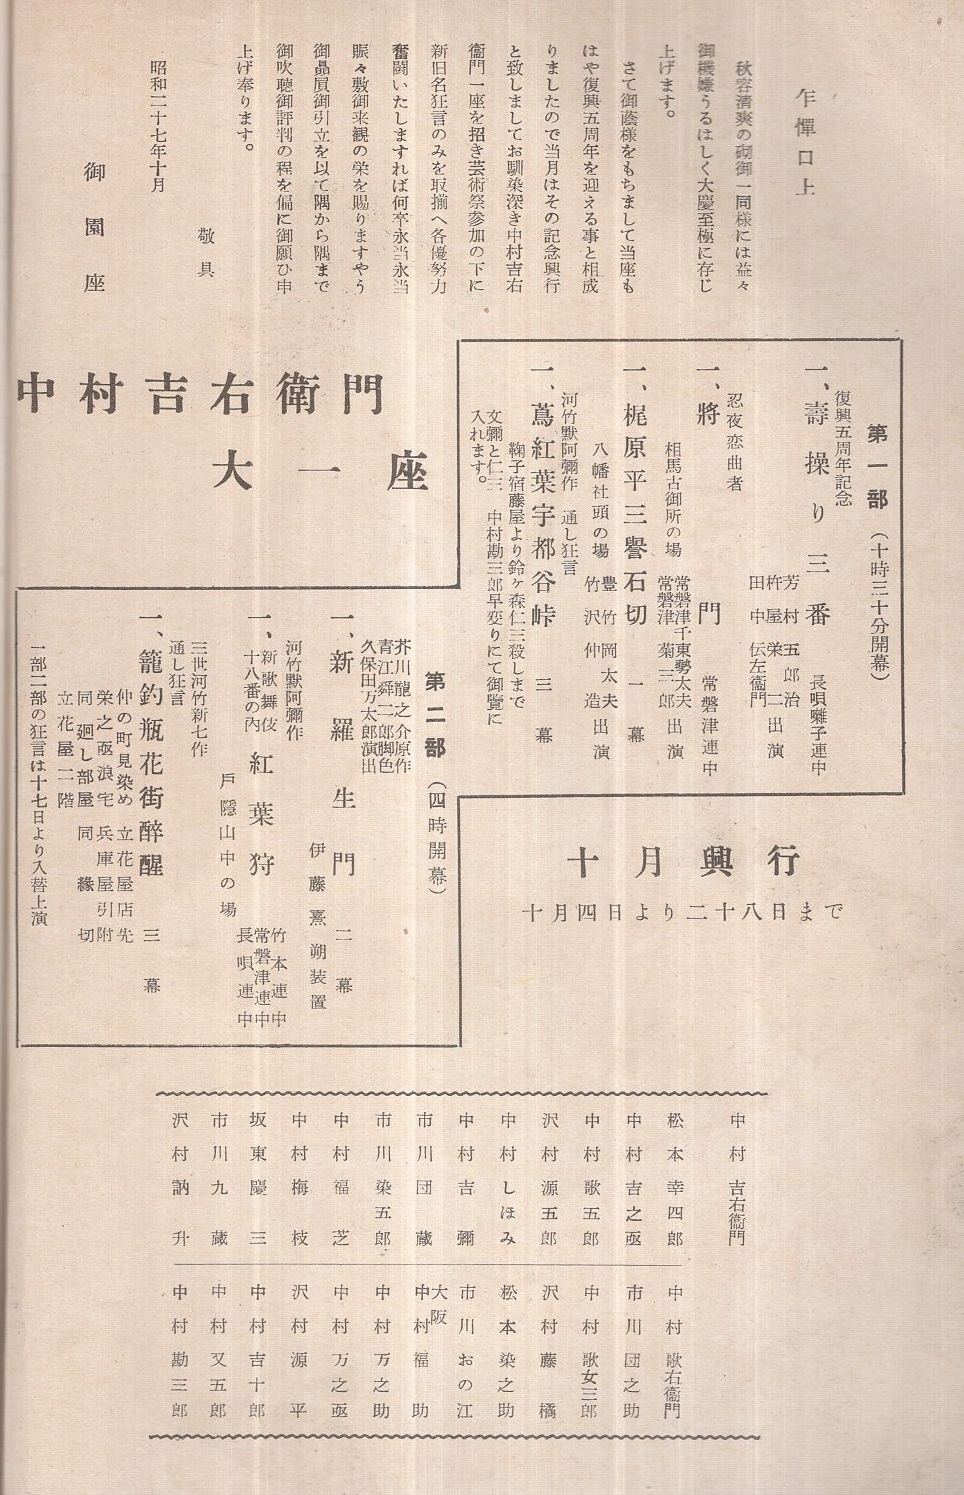 乍憚口上
秋容清爽の砌御一同様には益々
御機嫌うるはしく大慶至極に存じ
上げます。
さて御蔭様をもちまして当座も
はや復興五周年を迎える事と相成
りましたので当月はその記念興行
と致しましてお馴染深き中村吉右
衞門一座を招き芸術祭参加の下に
新旧名狂言のみを取揃へ各優努力
奮闘いたしますれば何卒永当永当
賑々敷御来観の栄を賜りますやう
御贔屓御引立を以て隅から隅まで
御吹聴御評判の程を偏に御願ひ申
上げ奉ります。
敬具
昭和二十七年十月
御園座
中村吉右衛門
大一座
第一部(十時三十分開幕)
復興五周年記念
一、壽操り三番
長唄囃子連中
芳村五郎治
杵屋栄二出演
田中伝左衞門
忍夜恋曲者
一、將門
常磐津連中
相馬古御所の場
常磐津千東勢太夫
常磐津菊三郎出演
一、梶原平三譽石切 一幕
八幡社頭の場
豊竹岡太夫
竹沢仲造出演
河竹默阿彌作 通し狂言
一、蔦紅葉宇都谷峠 三幕
鞠子宿藤屋より鈴ヶ森仁三殺しまで
文彌と仁三 中村勘三郎早変りにて御覽に
入れます。
第二部(四時開幕)
芥川龍之介原作
青江舜二郎脚色
久保田万太郎演出
一、新羅生門 二幕
伊藤熹朔装置
河竹默阿彌作
一、新歌舞伎十八番の內 紅葉狩
竹本連中
常磐津連中
長唄連中
戶隱山中の場
三世河竹新七作
通し狂言
一、籠釣瓶花街醉醒 三幕
仲の町見染め 立花屋店先
栄之亟浪宅 兵庫屋引附
同廻し部屋 同緣切
立花屋二階
一部二部の狂言は十七日より入替上演
十月興行
十月四日より二十八日まで
中村吉右衞門
松本幸四郎
中村吉之亟
中村歌五郎
沢村源五郎
中村しほみ
中村吉彌
市川団蔵
市川染五郎
中村福芝
中村梅枝
坂東慶三
市川九蔵
沢村訥升
中村歌右衞門
市川団之助
中村歌女三郎
沢村藤橘
松本染之助
市川おの江
大阪中村福助
中村万之助
中村万之亟
沢村源平
中村吉十郎
中村又五郎
中村勘三郎